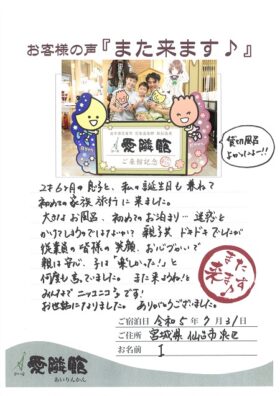 お客様の声『また来ます♪』
愛隣館
ご来館記念
貸切風呂
よかったよー!!
2才6ヶ月の息子と、私の誕生日も兼ねて
初めての家族旅行に来ました。
大きなお風呂、初めてのお泊まり… 迷惑と
かけてしまうのではないか? 親子共 ドキドキでしたが
従業員の皆様の笑顔、お心づかいで
親は安心、子は「楽しかった!」と
何度も言っていました。また来ようね!と
みんなで ニッコニコ です!
お世話になりました。ありがとうございました。
また来ます♪
ご宿泊日 令和5年7月31日
ご住所 宮城県仙台市
お名前 I
愛隣館
あいりんかん